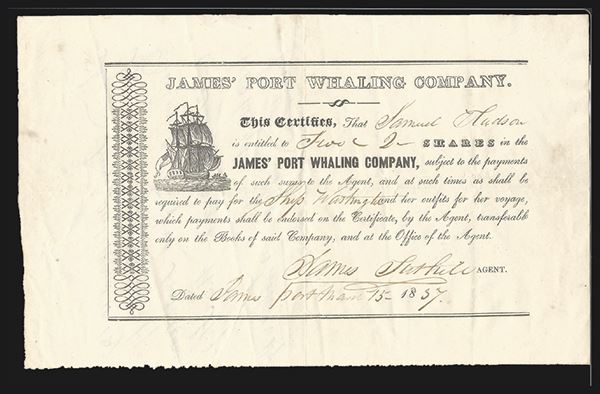 JAMES' PORT WHALING COMPANY.
This Certifies, That Samuel Hudson
is entitled to Two 2 SHARES in the
JAMES' PORT WHALING COMPANY, subject to the payments
of such sums to the Agent, and at such times as shall be
required to pay for the Ship and her outfits for her voyage,
which payments shall be endorsed on the Certificate, by the Agent, transferable
only on the Books of said Company, and at the Office of the Agent.
James AGENT.
Dated James port 15 1837.